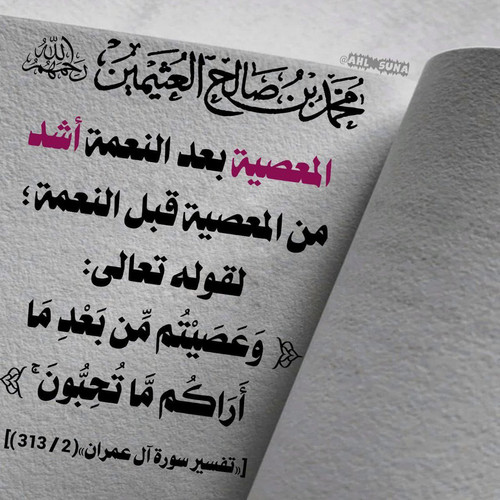 محمد بن صالح العثيمين رحمهم الله
@AHL_SUNA
المعصية بعد النعمة أشد
من المعصية قبل النعمة ؛
لقوله تعالى:
﴿ وَعَصَيْتُم مِّن بَعْدِ مَا
أَرَاكُم مَّا تُحِبُّونَ ۚ ﴾
[«تفسير سورة آل عمران»(2 / 313)]